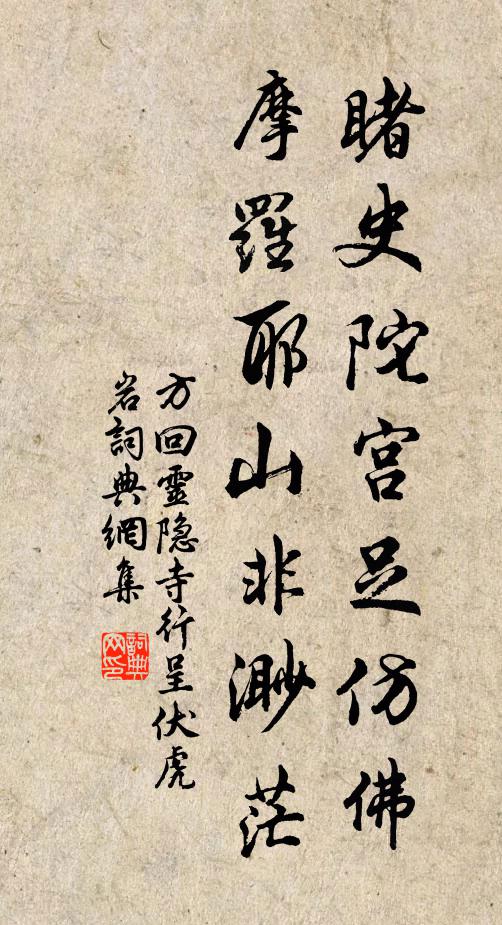 睹史陀宫足仿佛
摩羅耶山非渺茫
方回靈隐寺行呈伏虎
岩詞典網集
詞典
网印